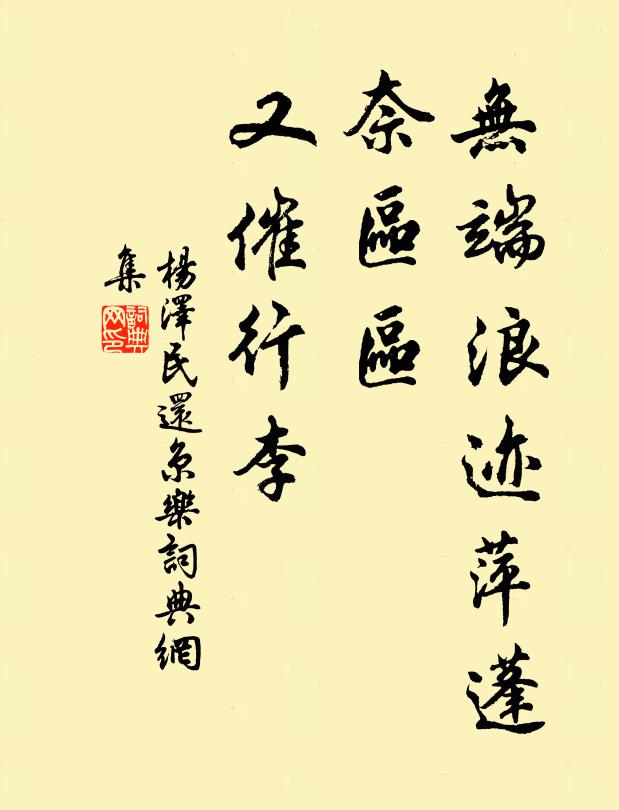 無端浪迹萍蓬
奈區區
又催行李
楊澤民還京樂詞典網
集
詞典
网印